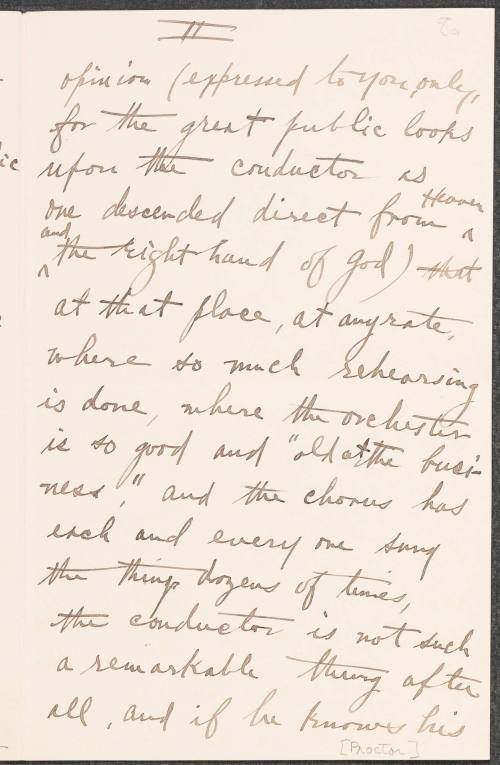 II
opinion (expressed to you only,
for the great public looks
upon the conductor as
one descended direct from ^ Heaven
^ and the right hand of God) that
at that place, at anyrate,
where so much rehearsing
is done, where the orchester
is so good and "old at the busi-
ness," and the chorus has
each and every one sung
the thing dozens of times,
the conductor is not such
a remarkable thing after
all, and if he knows his
[Proctor]